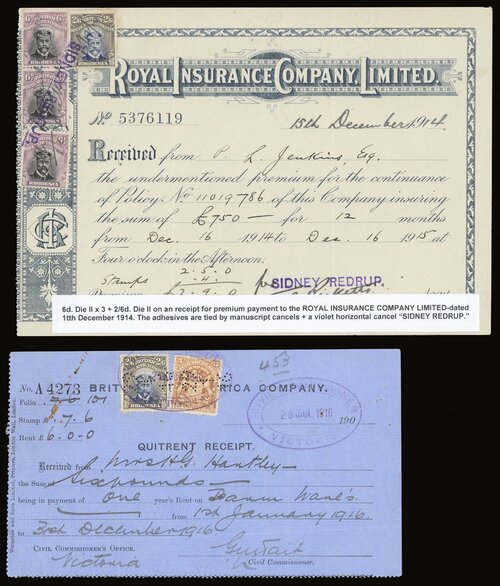 ROYAL INSURANCE COMPANY, LIMITED.
No 5376119
15th December 1914.
Received from P. L. Jenkins, Esq.
the undermentioned premium for the continuance
of Policy No 11019786 of this Company insuring
the sum of £750 — for 12 months
from Dec. 16 1914 to Dec. 16 1915 at
Four o'clock in the Afternoon.
2. 5. 0
Stamps . 4. -
SIDNEY REDRUP.
Premium £ 2. 9. 0
6d. Die II x 3 + 2/6d. Die II on an receipt for premium payment to the ROYAL INSURANCE COMPANY LIMITED-dated
11th December 1914. The adhesives are tied by manuscript cancels + a violet horizontal cancel "SIDNEY REDRUP."
453
No. A 4273 BRIT AFRICA COMPANY.
Folio 101
CIVIL COMMISSIONER
28 JAN. 1916
VICTORIA
190
Stamp £ . 7. 6
Rent £ 6. 0. 0
QUITRENT RECEIPT.
Received from Mrs H G. Hantley —
the Sum of Six pounds —
being in payment of one year's Rent on
from 1st January 1916.
to 3rd December 1916
CIVIL COMMISSIONER'S OFFICE.
Victoria
Civil Commissioner.